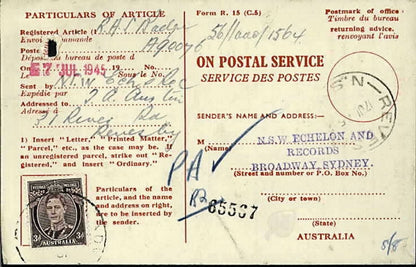 PARTICULARS OF ARTICLE
Registered Article (1
Envoi recommandé
A90076
Posté
Déposé au bureau de poste d
27 JUL 1945 19
Sous le No.
Sent by N.S.W. Ech & Rec
Expédié par
Addressed to
Adressé à
River Rd
Revesby
1) Insert "Letter," "Printed Matter,"
"Parcel," etc., as the case may be. If
an unregistered parcel, strike out "Registered," and insert "Ordinary."
Particulars of the
article, and the name
and address on right,
are to be inserted by
the sender.
POSTAGE
3D
3D
AUSTRALIA
Form R. 15 (C.5)
56/1000/1564
Postmark of office
Timbre du bureau
returning advice.
renvoyant l'avis
ON POSTAL SERVICE
SERVICE DES POSTES
SENDER'S NAME AND ADDRESS:
M
(Name)
N.S.W ECHELON AND
RECORDS
BROADWAY, SYDNEY.
(Street and number or P.O. Box No.)
PA
R2
65567
(City or country)
(State)
AUSTRALIA